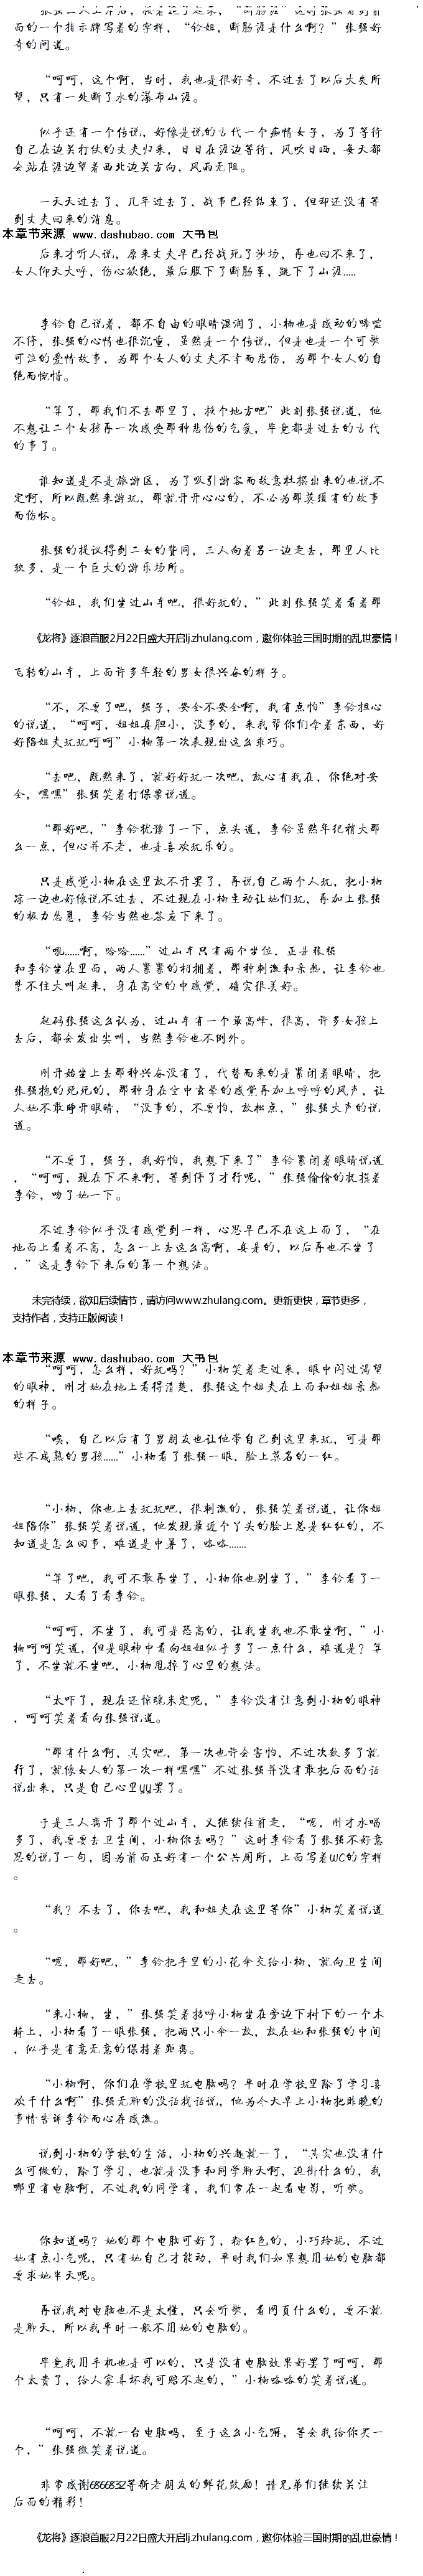 而的一个指示牌写着的字样，“铃姐，断肠涯是什么啊？”张强好
奇的问道。
“呵呵，这个啊，当时，我也是很好奇，不过去了以后大失所
望，只有一处断了水的瀑布山涯。
似乎还有一个传说，好像是说的古代一个痴情女子，为了等待
自己在边关打仗的丈夫归来，日日在涯边等待，风吹日晒，每天都
会站在涯边望着西北边关方向，风雨无阻。
一天天过去了，几年过去了，战事已经结束了，但却还没有等
到丈夫回来的消息。
本章节来源 www.dashubao.com 大书包
后来才听人说，原来丈夫早已经战死了沙场，再也回不来了，
女人仰天大呼，伤心欲绝，最后服下了断肠草，跳下了山涯.....
李铃自己说着，都不自由的眼睛湿润了，小柳也是感动的唏嘘
不停，张强的心情也很沉重，虽然是一个传说，但是也是一个可歌
可泣的爱情故事，为那个女人的丈夫不幸而悲伤，为那个女人的自
绝而惋惜。
“算了，那我们不去那里了，换个地方吧”此刻张强说道，他
不想让二个女孩再一次感受那种悲伤的气氛，毕竟都是过去的古代
的事了。
谁知道是不是旅游区，为了吸引游客而故意杜撰出来的也说不
定啊，所以既然来游玩，那就开开心心的，不必为那莫须有的故事
而伤怀。
张强的提议得到二女的赞同，三人向着另一边走去，那里人比
较多，是一个巨大的游乐场所。
“铃姐，我们坐过山车吧，很好玩的，”此刻张强笑着看着那
《龙将》逐浪首服2月22日盛大开启lj.zhulang.com，邀你体验三国时期的乱世豪情！
飞转的山车，上面许多年轻的男女很兴奋的样子。
“不，不要了吧，强子，安全不安全啊，我有点怕”李铃担心
的说道，“呵呵，姐姐真胆小，没事的，来我帮你们拿着东西，好
好陪姐夫玩玩呵呵”小柳第一次表现出这么乖巧。
“去吧，既然来了，就好好玩一次吧，放心有我在，你绝对安
全，嘿嘿”张强笑着打保票说道。
“那好吧，”李铃犹豫了一下，点头道，李铃虽然年纪稍大那
么一点，但心并不老，也是喜欢玩乐的。
只是感觉小柳在这里放不开罢了，再说自己两个人玩，把小柳
凉一边也好像说不过去，不过现在小柳主动让她们玩，再加上张强
的极力怂恿，李铃当然也答应下来了。
“哦......啊，哈哈......”过山车只有两个坐位，正是张强
和李铃坐在里面，两人紧紧的相拥着，那种刺激和亲热，让李铃也
禁不住大叫起来，身在高空的中感觉，确实很美好。
起码张强这么认为，过山车有一个最高峰，很高，许多女孩上
去后，都会发出尖叫，当然李铃也不例外。
刚开始坐上去那种兴奋没有了，代替而来的是紧闭着眼睛，把
张强抱的死死的，那种身在空中玄晕的感觉再加上呼呼的风声，让
人她不敢睁开眼睛，“没事的，不要怕，放松点，”张强大声的说
道。
“不要了，强子，我好怕，我想下来了”李铃紧闭着眼睛说道
，“呵呵，现在下不来啊，等到停了才行呢，”张强偷偷的抚摸着
李铃，吻了她一下。
不过李铃似乎没有感觉到一样，心思早已不在这上面了，“在
地面上看着不高，怎么一上去这么高啊，真是的，以后再也不坐了
，”这是李铃下来后的第一个想法。
未完待续，欲知后续情节，请访问www.zhulang.com。更新更快，章节更多，
支持作者，支持正版阅读！
本章节来源 www.dashubao.com 大书包
“呵呵，怎么样，好玩吗？”小柳笑着走过来，眼中闪过渴望
的眼神，刚才她在地上看得清楚，张强这个姐夫在上面和姐姐亲热
的样子。
“唉，自己以后有了男朋友也让他带自己到这里来玩，可是那
些不成熟的男孩......”小柳看了张强一眼，脸上莫名的一红。
“小柳，你也上去玩玩吧，很刺激的，张强笑着说道，让你姐
姐陪你”张强笑着说道，他发现最近个丫头的脸上总是红红的，不
知道是怎么回事，难道是中暑了，咯咯.......
“算了吧，我可不敢再坐了，小柳你也别坐了，”李铃看了一
眼张强，又看了看李铃。
“呵呵，不坐了，我可是恐高的，让我坐我也不敢坐啊，”小
柳呵呵笑道，但是眼神中看向姐姐似乎多了一点什么，难道是？算
了，不坐就不坐吧，小柳甩掉了心里的想法。
“太吓了，现在还惊魂未定呢，”李铃没有注意到小柳的眼神
，呵呵笑着看向张强说道。
“那有什么啊，其实吧，第一次也许会害怕，不过次数多了就
行了，就像女人的第一次一样嘿嘿”不过张强并没有敢把后面的话
说出来，只是自己心里YY罢了。
于是三人离开了那个过山车，又继续往前走，“嗯，刚才水喝
多了，我要要去卫生间，小柳你去吗？”这时李铃看了张强不好意
思的说了一句，因为前面正好有一个公共厕所，上面写着WC的字样
。
“我？不去了，你去吧，我和姐夫在这里等你”小柳笑着说道
。
“嗯，那好吧，”李铃把手里的小花伞交给小柳，就向卫生间
走去。
“来小柳，坐，”张强笑着招呼小柳坐在旁边下树下的一个木
椅上，小柳看了一眼张强，把两只小伞一放，放在她和张强的中间
，似乎是有意无意的保持着距离。
“小柳啊，你们在学校里玩电脑吗？平时在学校里除了学习喜
欢干什么啊”张强无聊的没话找话说，他为今天早上小柳把昨晚的
事情告诉李铃而心存感激。
说到小柳的学校的生活，小柳的兴趣就一了，“其实也没有什
么可做的，除了学习，也就是没事和同学聊天啊，逛街什么的，我
哪里有电脑啊，不过我的同学有，我们常在一起看电影，听歌。
你知道吗？她的那个电脑可好了，粉红色的，小巧玲珑，不过
她有点小气呢，只有她自己才能动，平时我们如果想用她的电脑都
要求她半天呢。
再说我对电脑也不是太懂，只会听歌，看网页什么的，要不就
是聊天，所以我平时一般不用她的电脑的。
毕竟我用手机也是可以的，只是没有电脑效果好罢了呵呵，那
个太贵了，给人家弄坏我可赔不起的，”小柳咯咯的笑着说道。
“呵呵，不就一台电脑吗，至于这么小气嘛，等会我给你买一
个，”张强微笑着说道。
非常感谢6866832等新老朋友的鲜花鼓励！请兄弟们继续关注
后面的精彩！
《龙将》逐浪首服2月22日盛大开启lj.zhulang.com，邀你体验三国时期的乱世豪情！